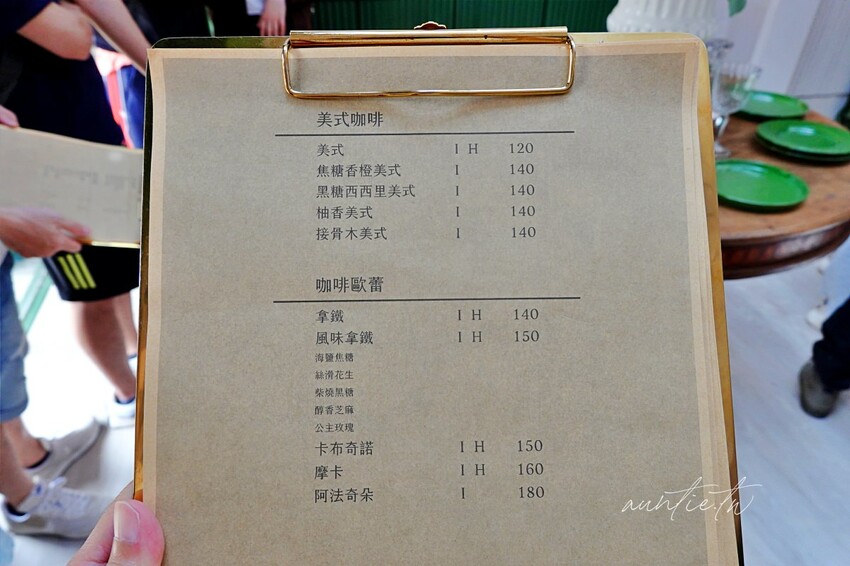 美式咖啡
美式 I H 120
焦糖香橙美式 I 140
黑糖西西里美式 I 140
柚香美式 I 140
接骨木美式 I 140
咖啡歐蕾
拿鐵 I H 140
風味拿鐵 I H 150
海鹽焦糖
絲滑花生
柴燒黑糖
醇香芝麻
公主玫瑰
卡布奇諾 I H 150
摩卡 I H 160
阿法奇朵 I 180
auntie.tw